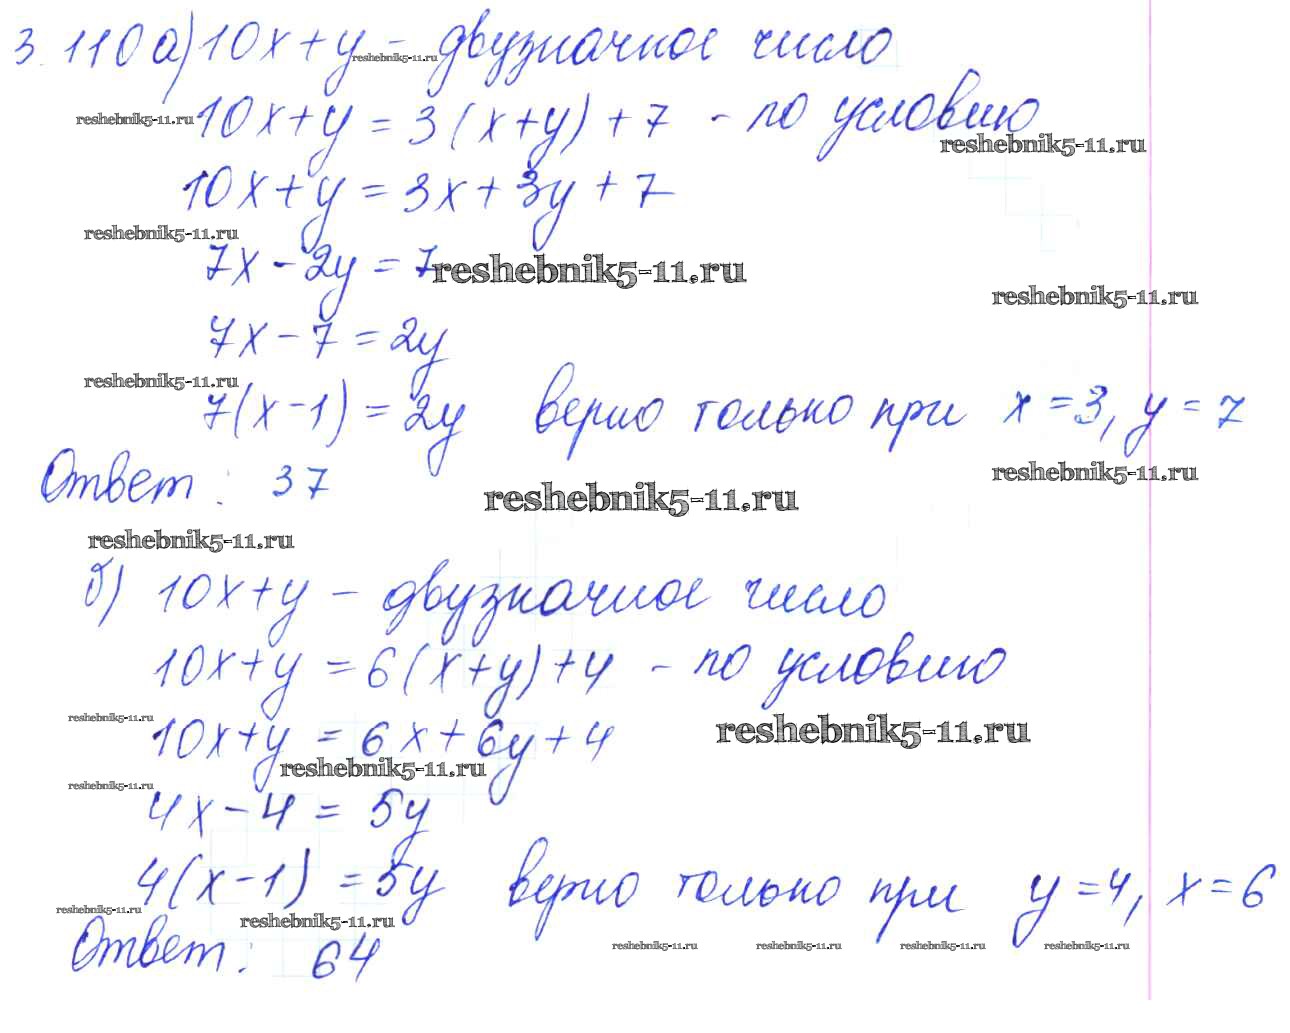 3.110 а) 10x+y - двузначное число
reshebnik5-11.ru
reshebnik5-11.ru
10x+y = 3(x+y)+7 - по условию
reshebnik5-11.ru
10x+y = 3x+3y+7
reshebnik5-11.ru
7x-2y = 7
reshebnik5-11.ru
reshebnik5-11.ru
7x-7 = 2y
reshebnik5-11.ru
7(x-1) = 2y верно только при x=3, y=7
reshebnik5-11.ru
Ответ: 37
reshebnik5-11.ru
reshebnik5-11.ru
б) 10x+y - двузначное число
10x+y = 6(x+y)+4 - по условию
reshebnik5-11.ru
reshebnik5-11.ru
10x+y = 6x+6y+4
reshebnik5-11.ru
reshebnik5-11.ru
4x-4 = 5y
4(x-1) = 5y верно только при y=4, x=6
reshebnik5-11.ru
reshebnik5-11.ru
Ответ: 64
reshebnik5-11.ru reshebnik5-11.ru reshebnik5-11.ru reshebnik5-11.ru